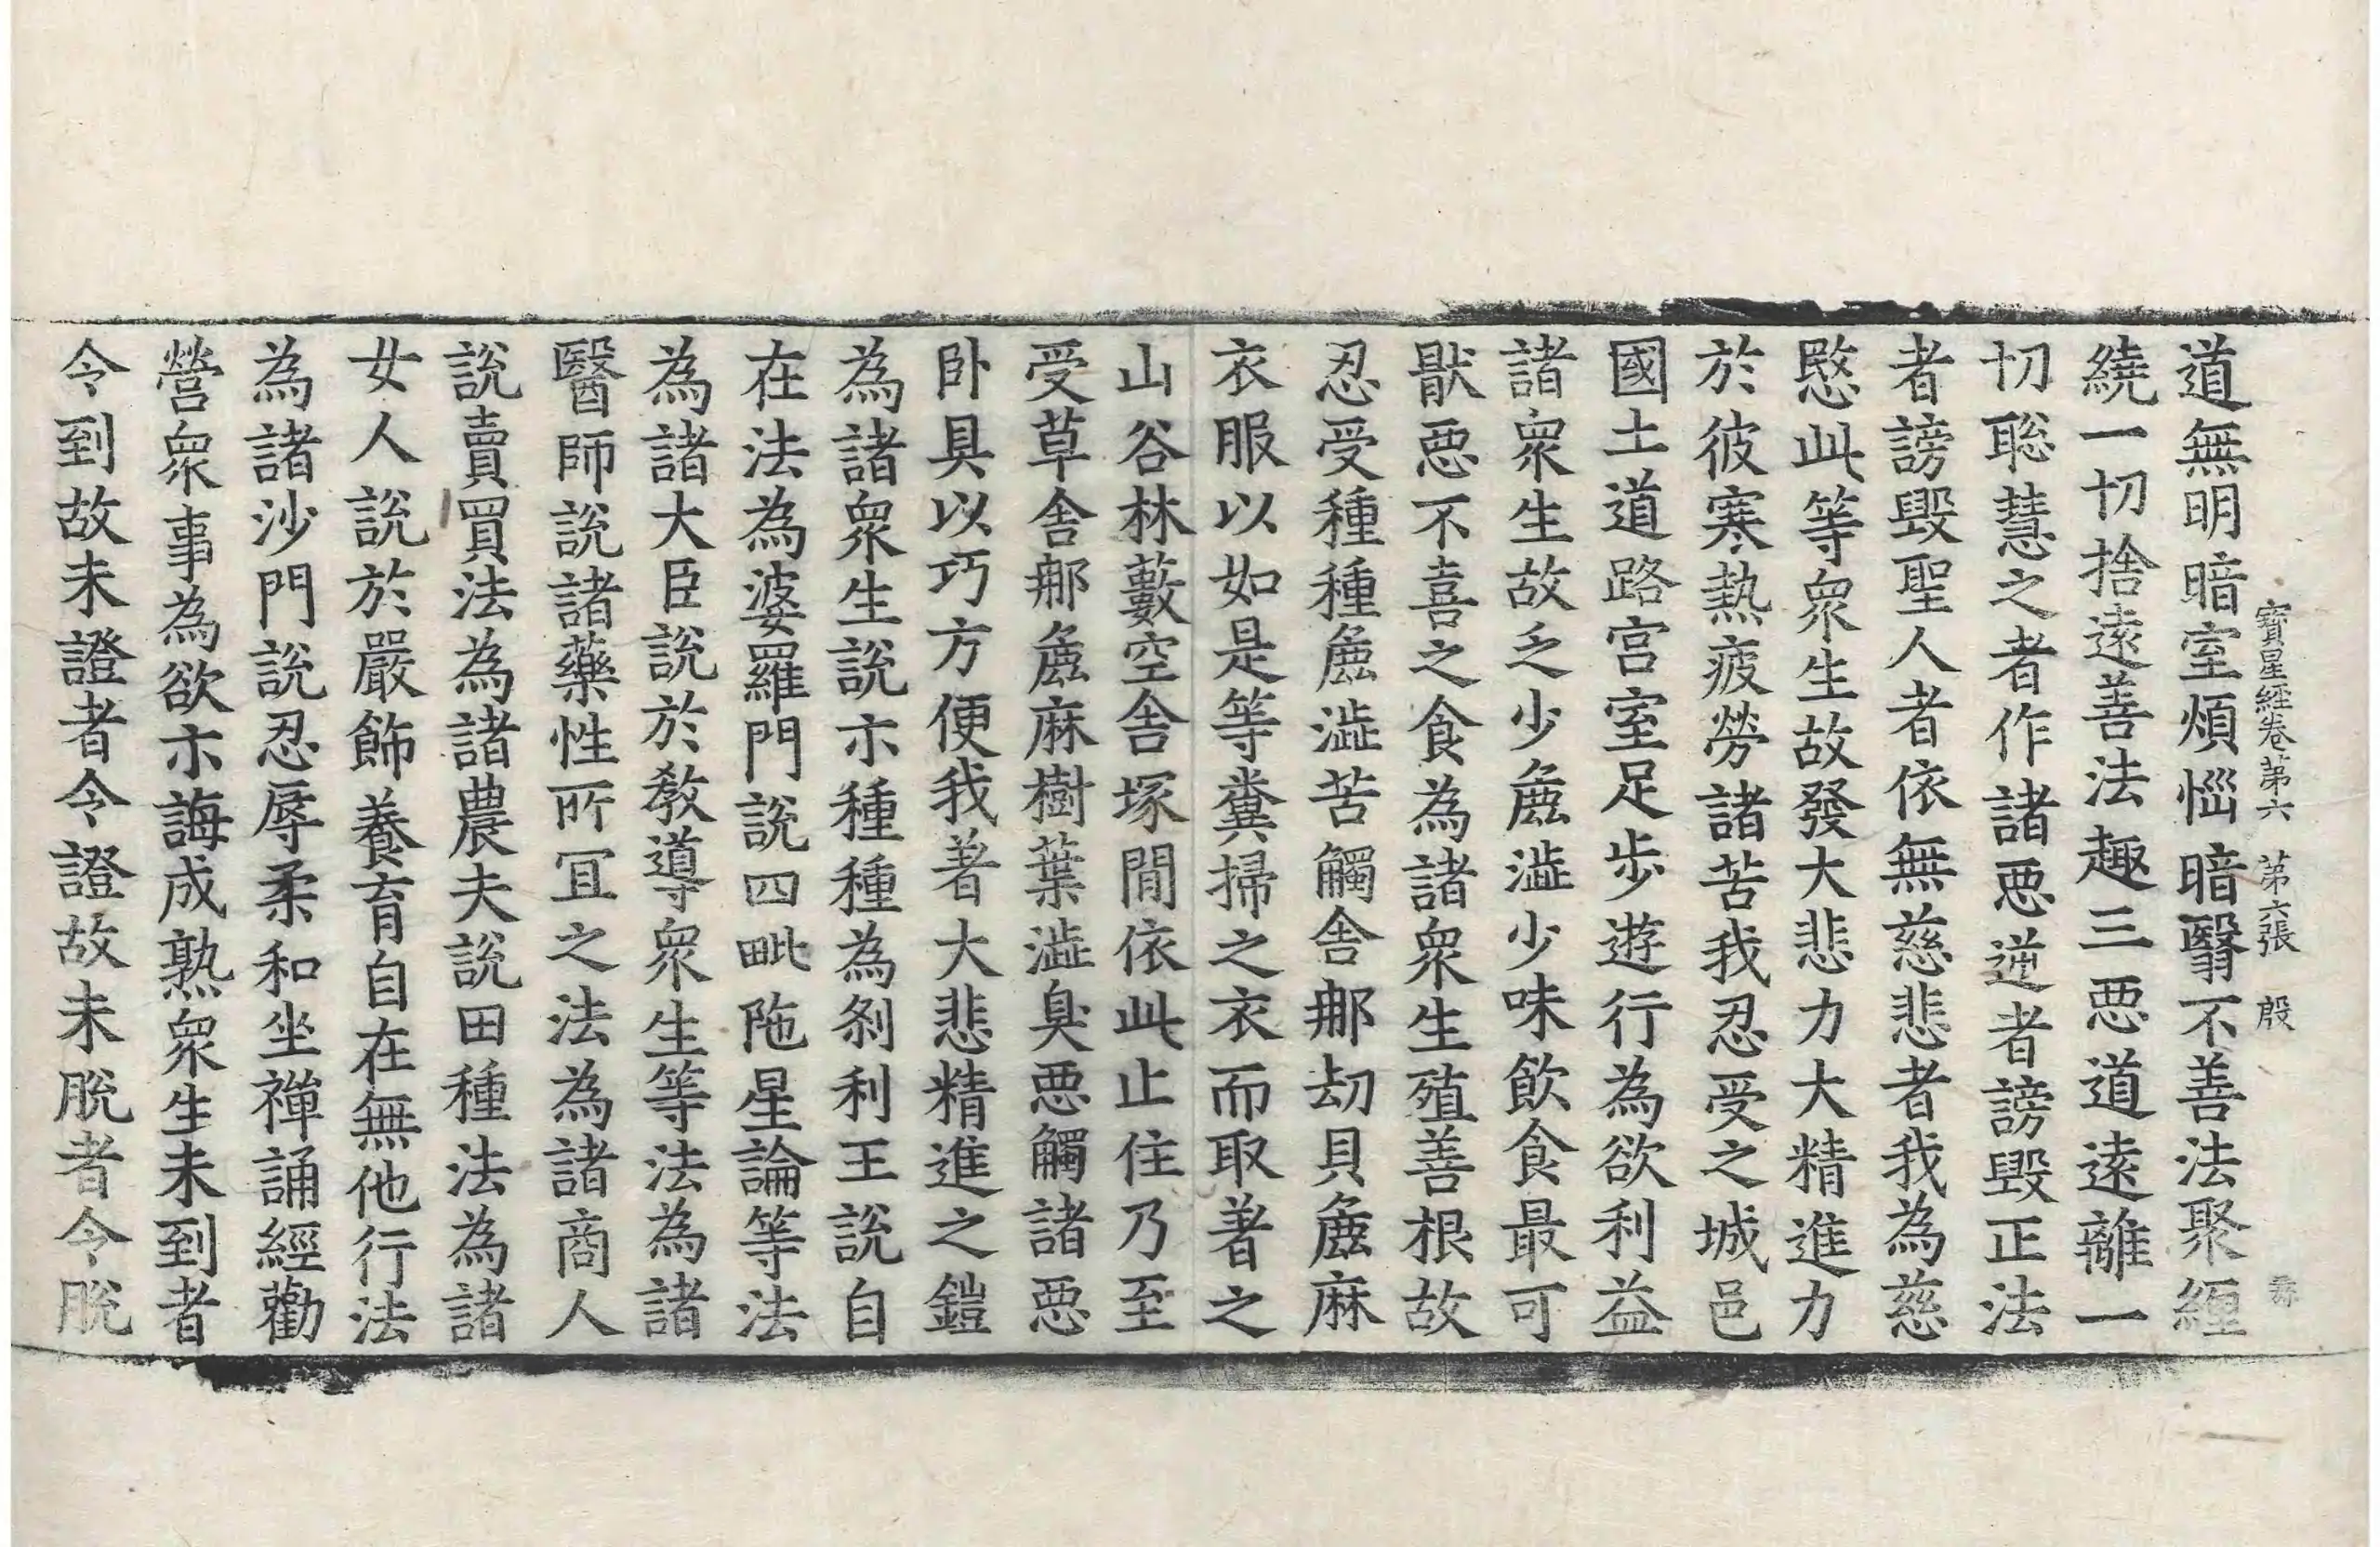 道無明暗室煩惱暗翳不善法聚緾
寶星經卷第六　第六張　殷
繞一切捨遠善法趣三惡道遠離一
切聡慧之者作諸惡逆者謗毀正法
者謗毀聖人者依無慈悲者我為慈
愍此等衆生故發大悲力大精進力
於彼寒熱疲勞諸苦我忍受之城邑
國土道路宫室足步遊行為欲利益
諸衆生故乏少麁澁少味飲食最可
猒惡不喜之食為諸衆生殖善根故
忍受種種麁澁苦觸舎那刧貝麁麻
衣服以如是等糞掃之衣而取著之
山谷林藪空舎塚間依此止住乃至
受草舎那麁麻樹葉澁臭惡觸諸惡
卧具以巧方便我著大悲精進之鎧
為諸衆生說示種種為刹利王說自
在法為婆羅門說四毗陁星論等法
為諸大臣說於教導衆生等法為諸
醫師說諸藥性所冝之法為諸商人
說賣買法為諸農夫說田種法為諸
女人說於嚴飾養育自在無他行法
為諸沙門說忍辱柔和坐禪誦經勸
營衆事為欲示誨成熟衆生未到者
令到故未證者令證故未脫者令脫